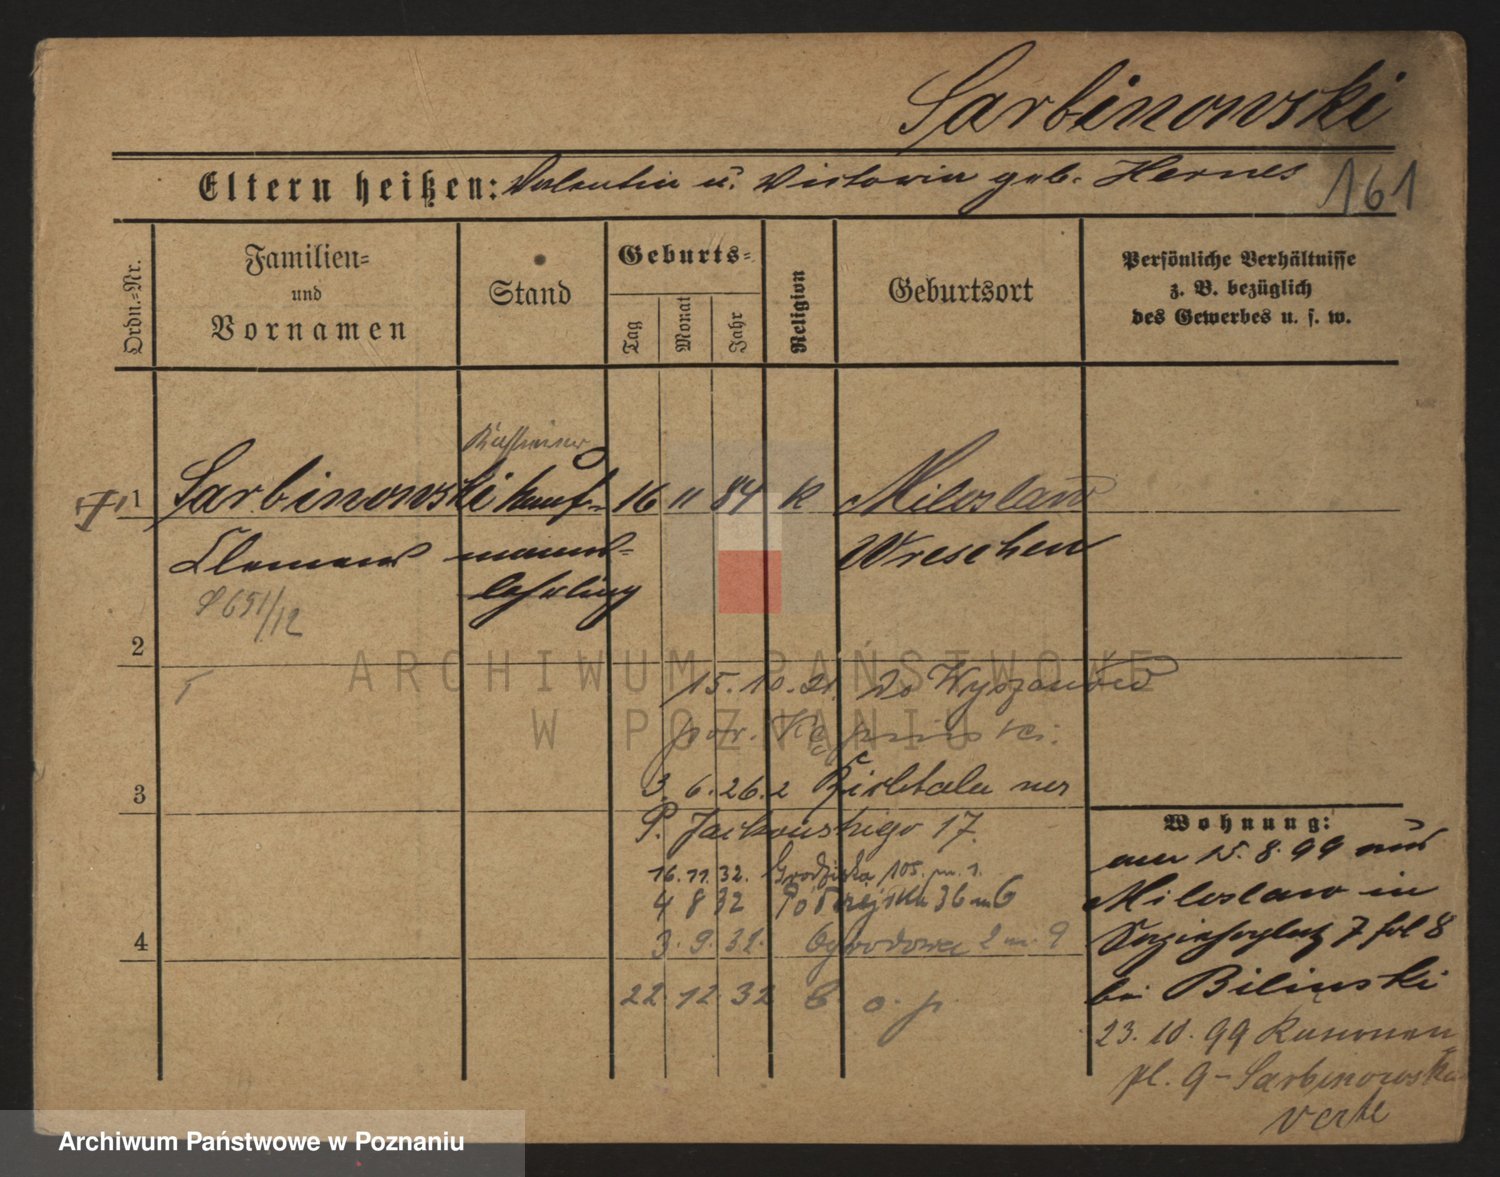 Sarbinowski
Eltern heißen: Valentin u. Victoria geb. Hernes
161
Ordn.=Nr.
Familien=
und
Vornamen
Stand
Geburts=
Tag
Monat
Jahr
Religion
Geburtsort
Persönliche Verhältnisse
z. B. bezüglich
des Gewerbes u. s. w.
1
Sarbinowski Kauf= 16 11 84 K Miloslaw
Clemens manns= Wreschen
lehrling
651/12
2
ARCHIWUM PAŃSTWOWE
W POZNANIU
15. 10. 21. do Wyszanów
potr. Kępiński.
3
3. 6. 26. z
P. Jackowskiego 17.
16. 11. 32. Grodziska 105. m. 1.
4 8 32 36 m 6
4
3. 9. 32. Ogrodowa 2 m. 9
22 12 32 o. p.
Wohnung:
am 15. 8. 99 aus
Miloslaw in
7 bei Bilinski
23. 10. 99 Kanonen
pl. 9 - Sarbinowska
verte
Archiwum Państwowe w Poznaniu